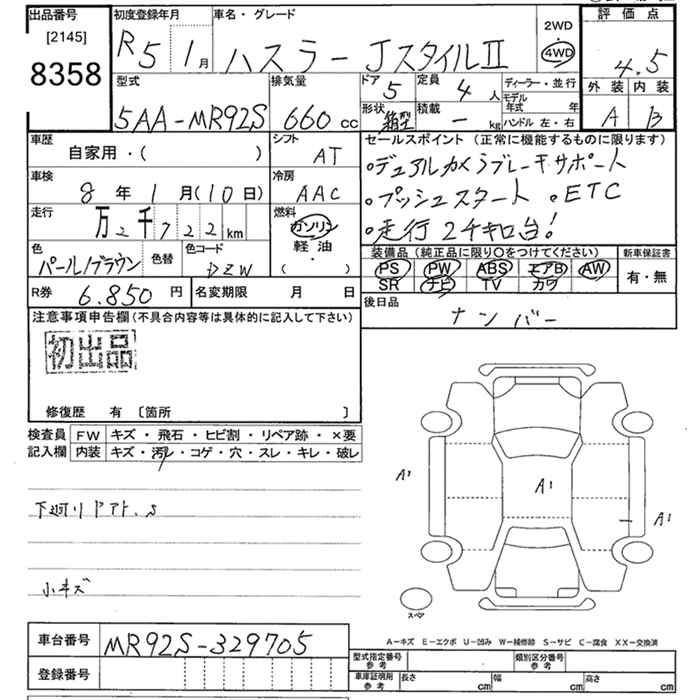 出品番号 初度登録年月 車名・グレード 2WD・4WD 評価点
[2145]
8358
R5 1月 ハスラー JスタイルⅡ 4.5
型式 排気量 ドア 定員 ディーラー・並行 外装 内装
5AA-MR92S 660cc 5 4人 モデル年式 年 A B
形状 箱型 積載 - kg ハンドル 左・右
車歴 シフト セールスポイント(正常に機能するものに限ります)
自家用・( ) AT ・デュアルカメラブレーキサポート
車検 冷房
8年1月(10日) AAC ・プッシュスタート ・ETC
走行 燃料
万2千722km ガソリン ・走行2千キロ台!
軽油・( )
色 色替 色コード 装備品(純正品に限り○をつけてください) 新車保証書
パール/ブラウン DZW PS PW ABS エアB AW 有・無
SR ナビ TV カワ
R券 6.850円 名変期限 月 日 後日品
ナンバー
注意事項申告欄(不具合内容等は具体的に記入して下さい)
初出品
修復歴 有 [箇所 ]
検査員 FW キズ・飛石・ヒビ割・リペア跡・×要
記入欄 内装 キズ・汚レ・コゲ・穴・スレ・キレ・破レ
A1 A1 A1
小キズ
スペア
A-キズ E-エクボ U-凹み W-補修跡 S-サビ C-腐食 XX-交換済
車台番号 MR92S-329705
登録番号
型式指定番号 参考 類別区分番号 参考
車庫証明用 参考 長さ cm 幅 cm 高さ cm